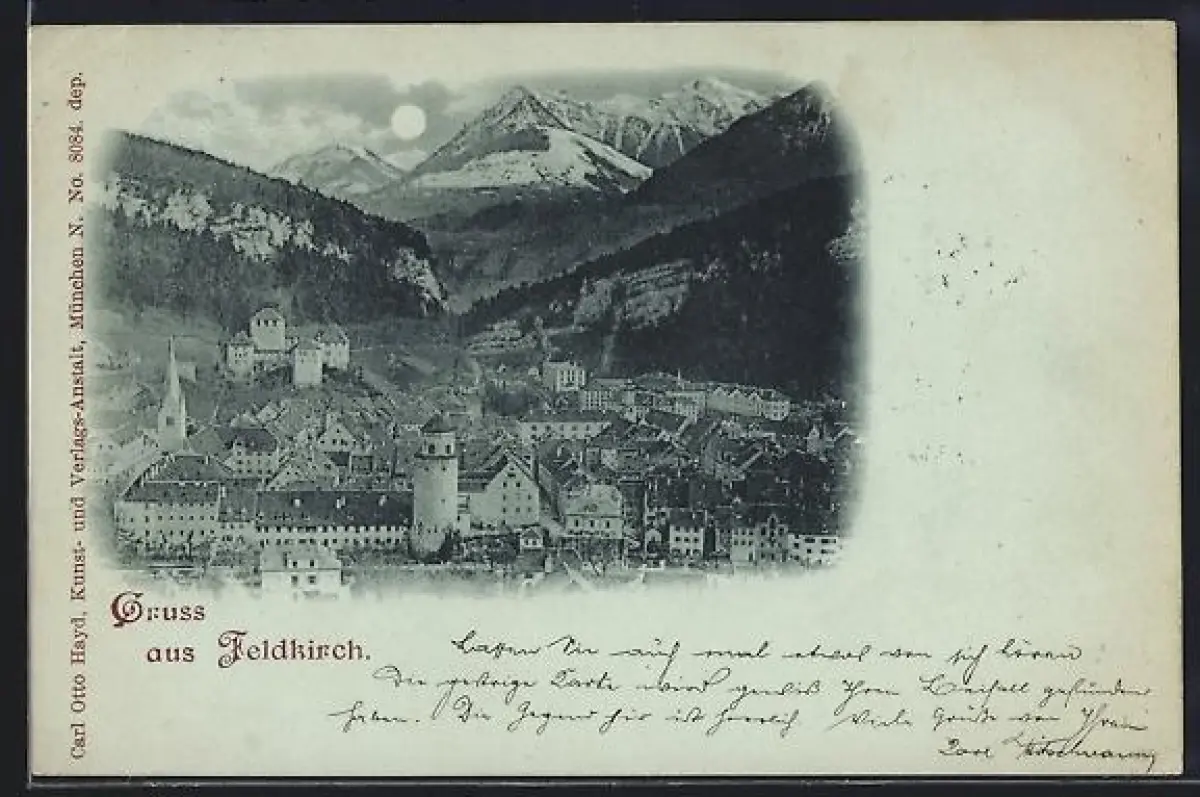 Carl Otto Hayd, Kunst- und Verlags-Anstalt, München N. No. 8084. dep.
Gruss
aus Feldkirch.
Lassen Sie auch mal etwas von sich hören
Die gestrige Karte wird gewiß Ihren Beifall gefunden
haben. Die Gegend hier ist herrlich. Viele Grüße von Ihrem